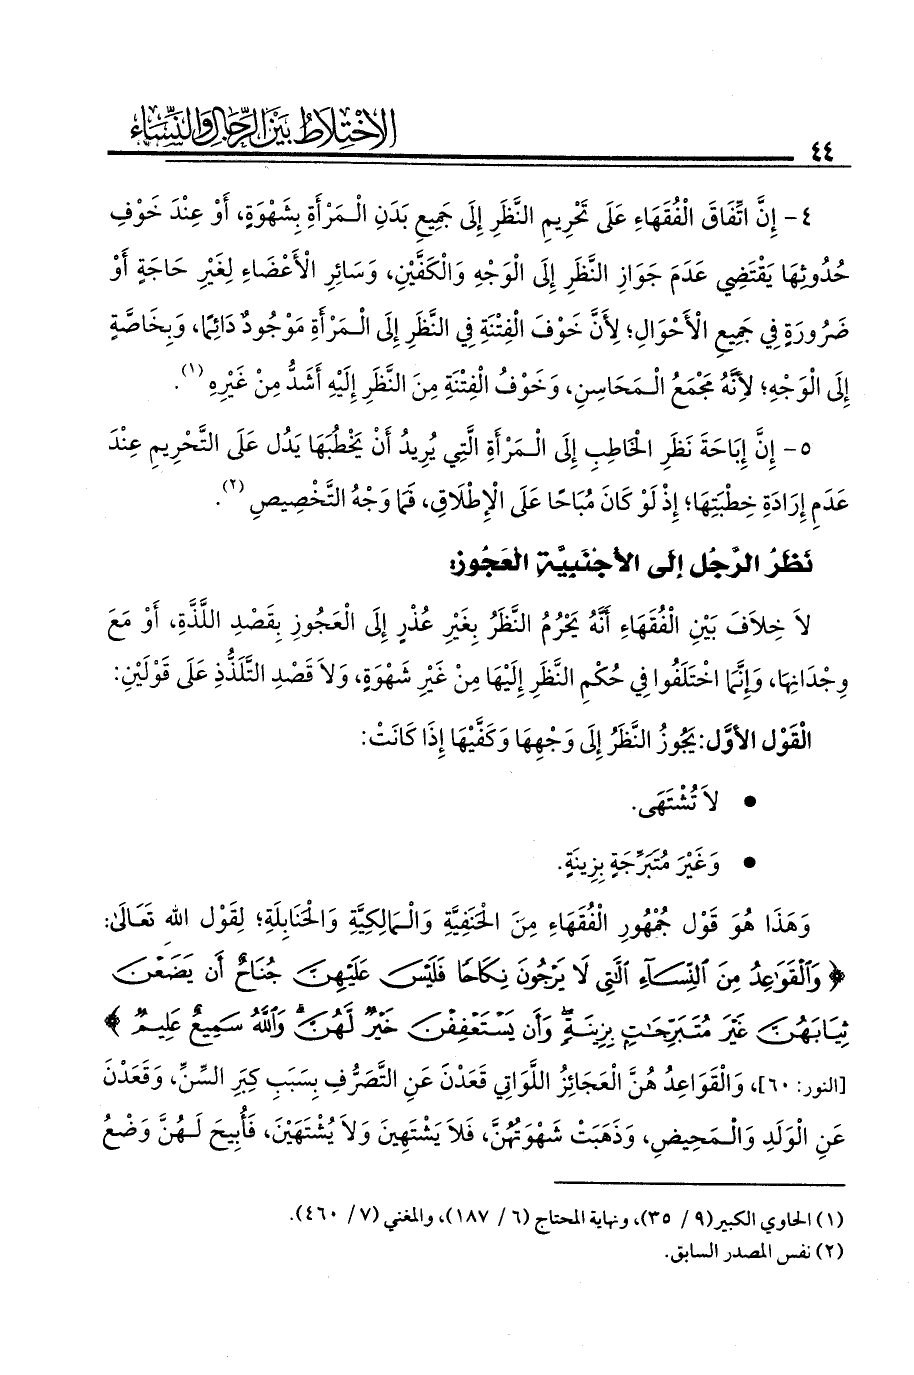 الاختلاط بين الرجال والنساء
٤٤
٤- إِنَّ اتِّفَاقَ الْفُقَهَاءِ عَلَى تَحْرِيمِ النَّظَرِ إِلَى جَمِيعِ بَدَنِ الْـمَرْأَةِ بِشَهْوَةٍ، أَوْ عِنْدَ خَوْفِ
حُدُوثِهَا يَقْتَضِي عَدَمَ جَوَازِ النَّظَرِ إِلَى الْوَجْهِ وَالْكَفَّيْنِ، وَسَائِرِ الْأَعْضَاءِ لِغَيْرِ حَاجَةٍ أَوْ
ضَرُورَةٍ فِي جَمِيعِ الْأَحْوَالِ؛ لِأَنَّ خَوْفَ الْفِتْنَةِ فِي النَّظَرِ إِلَى الْـمَرْأَةِ مَوْجُودٌ دَائِمًا، وَبِخَاصَّةٍ
إِلَى الْوَجْهِ؛ لِأَنَّهُ مَجْمَعُ الْـمَحَاسِنِ، وَخَوْفُ الْفِتْنَةِ مِنَ النَّظَرِ إِلَيْهِ أَشَدُّ مِنْ غَيْرِهِ (١).
٥- إِنَّ إِبَاحَةَ نَظَرِ الْخَاطِبِ إِلَى الْـمَرْأَةِ الَّتِي يُرِيدُ أَنْ يَخْطُبَهَا يَدُل عَلَى التَّحْرِيمِ عِنْدَ
عَدَمِ إِرَادَةِ خِطْبَتِهَا؛ إِذْ لَوْ كَانَ مُبَاحًا عَلَى الْإِطْلَاقِ، فَمَا وَجْهُ التَّخْصِيصِ (٢).
نَظَرُ الرَّجُل إِلَى الأَجْنَبِيَّةِ الْعَجُوزِ:
لاَ خِلاَفَ بَيْنَ الْفُقَهَاءِ أَنَّهُ يَحْرُمُ النَّظَرُ بِغَيْرِ عُذْرٍ إِلَى الْعَجُوزِ بِقَصْدِ اللَّذَّةِ، أَوْ مَعَ
وِجْدَانِهَا، وَإِنَّمَا اخْتَلَفُوا فِي حُكْمِ النَّظَرِ إِلَيْهَا مِنْ غَيْرِ شَهْوَةٍ، وَلاَ قَصْدِ التَّلَذُّذِ عَلَى قَوْلَيْنِ:
الْقَوْل الأَوَّل: يَجُوزُ النَّظَرُ إِلَى وَجْهِهَا وَكَفَّيْهَا إِذَا كَانَتْ:
● لاَ تُشْتَهَى.
● وَغَيْرَ مُتَبَرِّجَةٍ بِزِينَةٍ.
وَهَذَا هُوَ قَوْل جُمْهُورِ الْفُقَهَاءِ مِنَ الْحَنَفِيَّةِ وَالْـمَالِكِيَّةِ وَالْحَنَابِلَةِ؛ لِقَوْل الله تَعَالَىٰ:
﴿ وَٱلْقَوَٰعِدُ مِنَ ٱلنِّسَآءِ ٱلَّٰتِى لَا يَرْجُونَ نِكَاحًا فَلَيْسَ عَلَيْهِنَّ جُنَاحٌ أَن يَضَعْنَ
ثِيَابَهُنَّ غَيْرَ مُتَبَرِّجَٰتٍۭ بِزِينَةٍۖ وَأَن يَسْتَعْفِفْنَ خَيْرٌ لَّهُنَّۗ وَٱللَّهُ سَمِيعٌ عَلِيمٌ ﴾
[النور: ٦٠]، وَالْقَوَاعِدُ هُنَّ الْعَجَائِزُ اللَّوَاتِي قَعَدْنَ عَنِ التَّصَرُّفِ بِسَبَبِ كِبَرِ السِّنِّ، وَقَعَدْنَ
عَنِ الْوَلَدِ وَالْـمَحِيضِ، وَذَهَبَتْ شَهْوَتُهُنَّ، فَلاَ يَشْتَهِينَ وَلاَ يُشْتَهَيْنَ، فَأُبِيحَ لَـهُنَّ وَضْعُ
(١) الحاوي الكبير (٩/ ٣٥)، ونهاية المحتاج (٦/ ١٨٧)، والمغني (٧/ ٤٦٠).
(٢) نفس المصدر السابق.